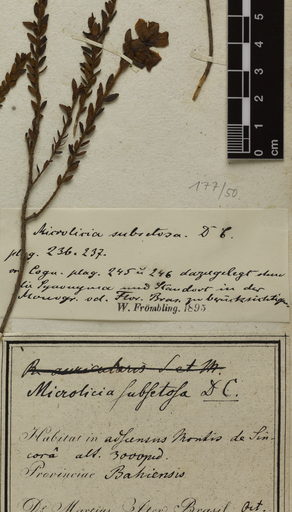 5
0
cm
177/50
Microlicia subsetosa. D C.
pag. 236. 237.
Cogn. pag. 245 u 246 dazugelegt
die Synonyma und Standort in der
Monogr. od. Flor. Bras. zu berücksichtigen
W. Frömbling. 1895
R. auricularis S et M.
Microlicia subsetosa D C.
Habitat in adscensu Montis de Sin-
corà alt. 3000ped.
Provinciae Bahiensis
Dr. Martius Iter Brasil. Oct.